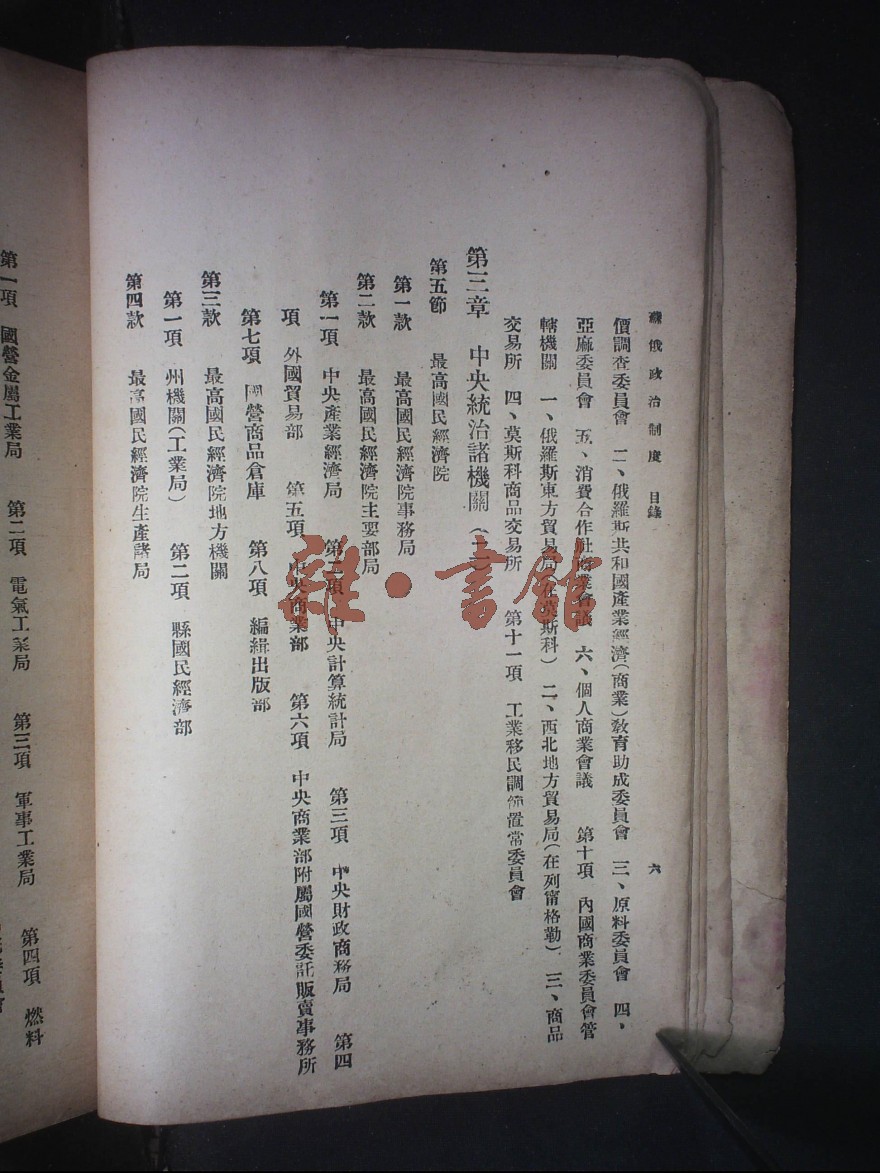 蘇俄政治制度　目錄　六
價調查委員會　二、俄羅斯共和國產業經濟（商業）敎育助成委員會　三、原料委員會　四、
亞麻委員會　五、消費合作社商業會議　六、個人商業會議　第十項　內國商業委員會管
轄機關　一、俄羅斯東方貿易局（在莫斯科）　二、西北地方貿易局（在列甯格勒）　三、商品
交易所　四、莫斯科商品交易所　第十一項　工業移民調節置常委員會
第三章　中央統治諸機關
第五節　最高國民經濟院
第一款　最高國民經濟院事務局
第二款　最高國民經濟院主要部局
第一項　中央產業經濟局　第二項　中央計算統計局　第三項　中央財政商務局　第四
項　外國貿易部　第五項　中央商業部　第六項　中央商業部附屬國營委託販賣事務所
第七項　國營商品倉庫　第八項　編緝出版部
第三款　最高國民經濟院地方機關
第一項　州機關（工業局）　第二項　縣國民經濟部
第四款　最高國民經濟院生產諸局
第一項　國營金屬工業局　第二項　電氣工業局　第三項　軍事工業局　第四項　燃料
雜·書館